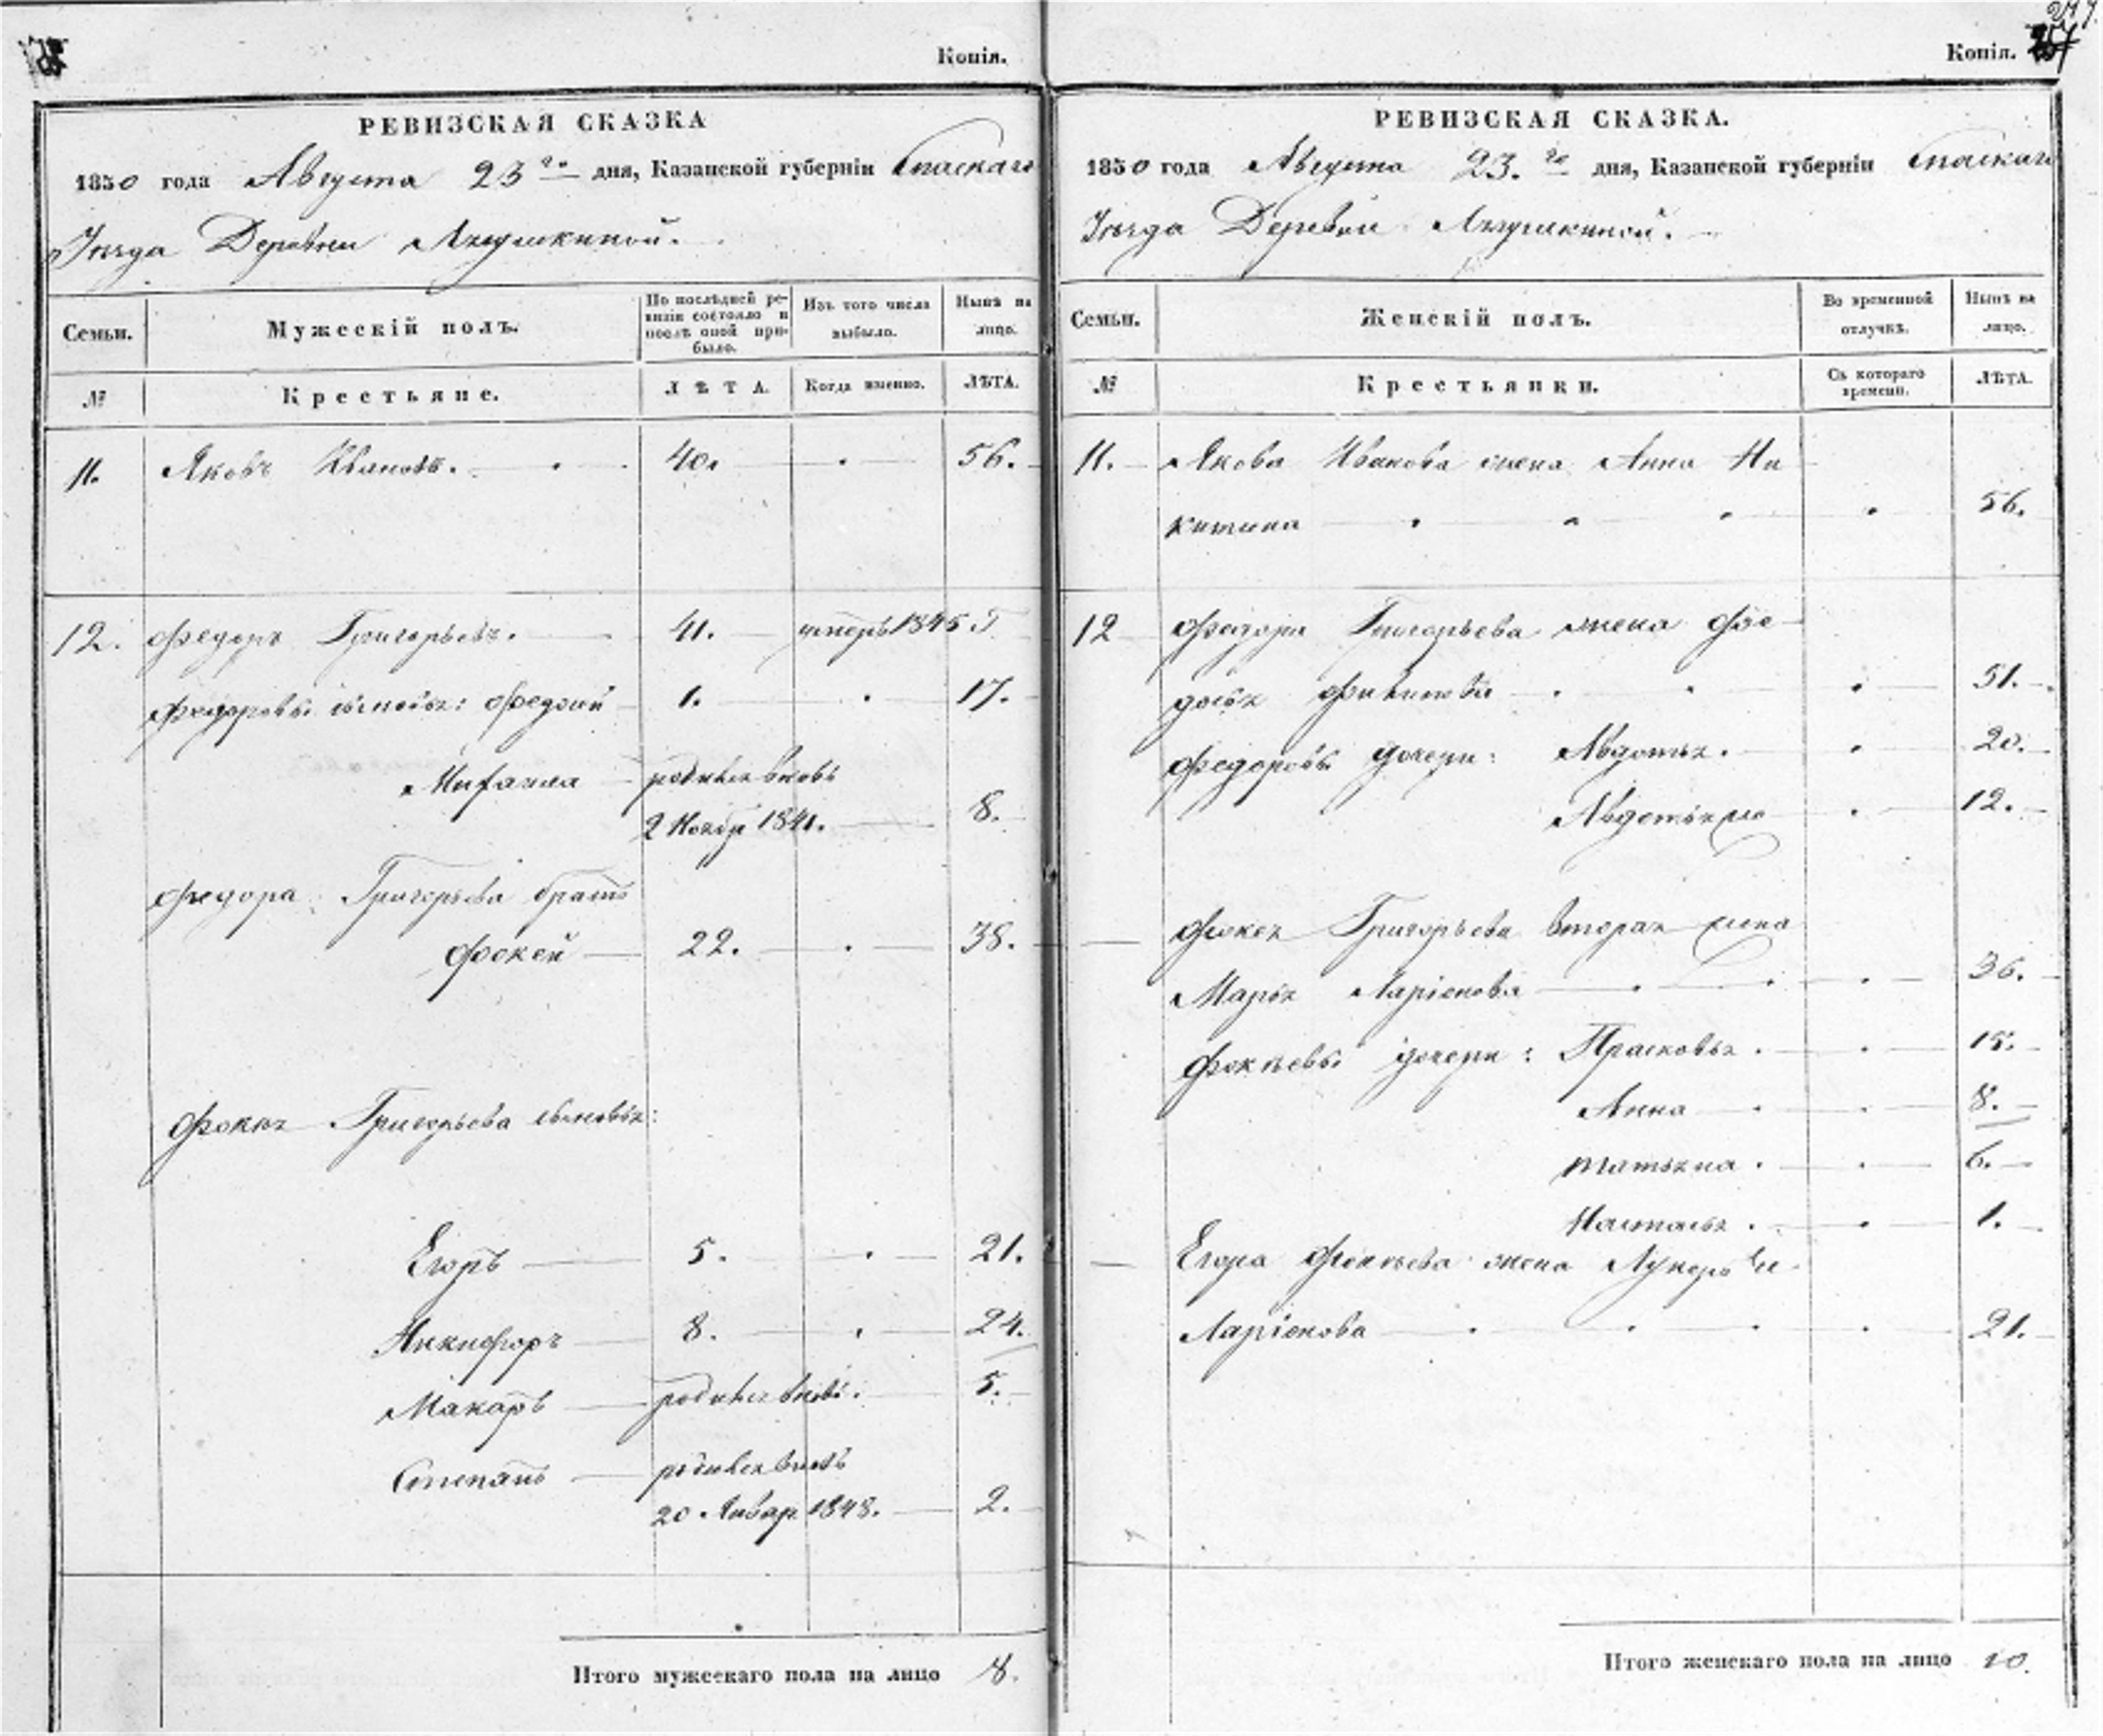 Копія.
РЕВИЗСКАЯ СКАЗКА
1850 года Августа 23го дня, Казанской губерніи Спаскаго
Уѣзда Деревни
Семьи.
Мужескій полъ.
По послѣдней ре-
визіи состояло и
послѣ оной при-
было.
Изъ того числа
выбыло.
Нынѣ на
лицо.
№
Крестьяне.
ЛѢТА.
Когда именно.
ЛѢТА.
11. Яковъ Ивановъ. 40. 56.
12. Федоръ Григорьевъ. 41. умеръ 1845 Г.
Федоровы сыновья: Федосѣй 1. 17.
Михаила родился вновь
2 Ноябр 1841. 8.
Федора Григорьева братъ
Фокей 22. 38.
Фокея Григорьева сыновья:
Егоръ 5. 21.
Никифоръ 8. 24.
Макаръ родился вновь. 5.
Степанъ родился вновь
20 Январ 1848. 2.
Итого мужескаго пола на лицо 8.
Копія.
РЕВИЗСКАЯ СКАЗКА.
1850 года Августа 23.го дня, Казанской губерніи Спаскаго
Уѣзда Деревни
Семьи.
Женскій полъ.
Во временной
отлучкѣ.
Нынѣ на
лицо.
№
Крестьянки.
Съ котораго
времени.
ЛѢТА.
11. Якова Иванова жена Анна Ни
китина 56.
12 Федора Григорьева жена Фео
досья Филипова 51.
Федоровы дочери: Авдотья. 20.
Авдотья 12.
Фокея Григорьева вторая жена
Марья Ларіонова 36.
Фокѣевы дочери: Прасковья. 15.
Анна 8.
Татьяна. 6.
Настасья. 1.
Егора Фокѣева жена Лукерья
Ларіонова 21.
Итого женскаго пола на лицо 10.